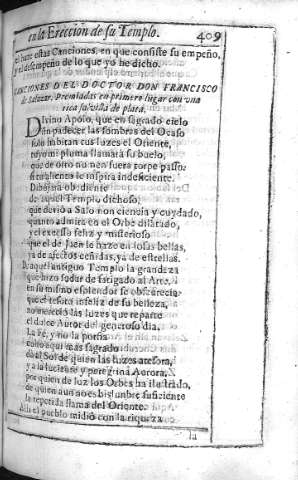 en la Ereccion de su Templo. 409
el hazer estas Canciones, en que consiste su empeño,
y el desempeño de lo que yo he dicho.
CANCIONES DEL DOCTOR DON FRANCISCO
de Salazar. Premiadas en primero lugar con una
rica salvilla de plata.
Divino Apolo, que en sagrado cielo
sin padecer las sombras del Ocaso
solo habitan tus luzes el Oriente,
tuyo mi pluma llamará su buelo,
que de otro no non fuera torpe passo
si tu aliento le inspira indeficiente.
Dibuxa obediente
de aquel Templo dichoso,
que devió a Salomon ciencia y cuydado,
quanto admira en el Orbe dilatado,
y el excesso feliz y misterioso
que el de Jaen le haze en losas bellas,
ya de afectos ceñidas, ya de estrellas.
De aquel antiguo Templo la grandeza
que hizo sudar de fatigado al Arte,
en su mismo esplendor se obscurecia
que el tesoro infeliz de su belleza,
no mereció las luzes que reparte
el dulce Autor del generoso dia.
La Fè, y no la porfia
como aqui mas sagrado
dà al Sol de quien las luzes atesora,
y a la luciente y peregrina Aurora,
por quien de luz los Orbes ha ilustrado,
de quien aun no es bislumbre suficiente
la repetida llama del Oriente.
Alli el pueblo midiò con la riqueza
la